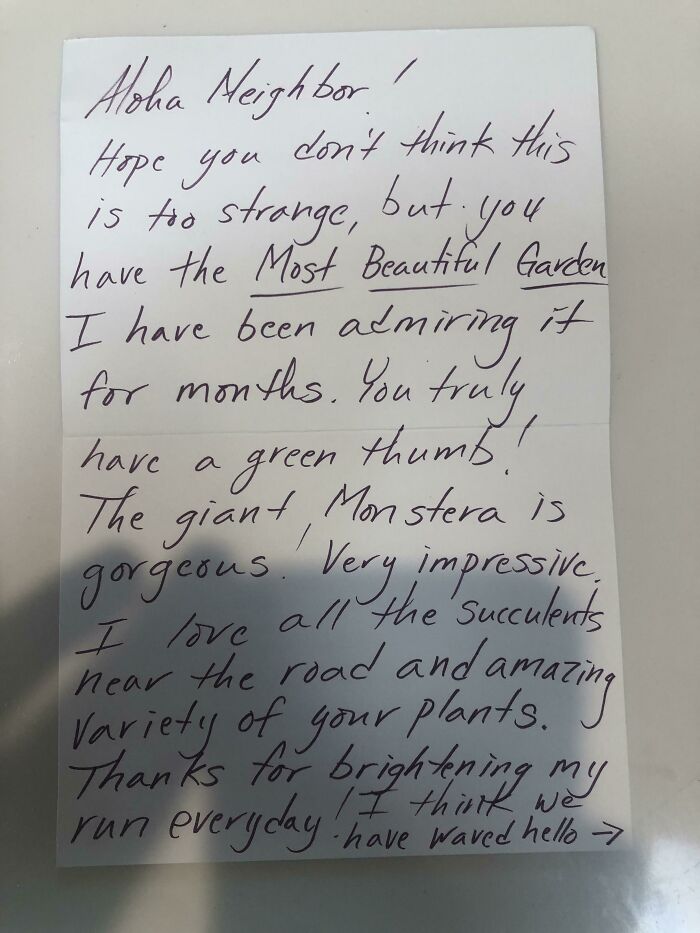 Aloha Neighbor!
Hope you don't think this
is too strange, but you
have the Most Beautiful Garden
I have been admiring it
for months. You truly
have a green thumb!
The giant Monstera is
gorgeous! Very impressive.
I love all the succulents
near the road and amazing
variety of your plants.
Thanks for brightening my
run everyday! I think we
have waved hello →